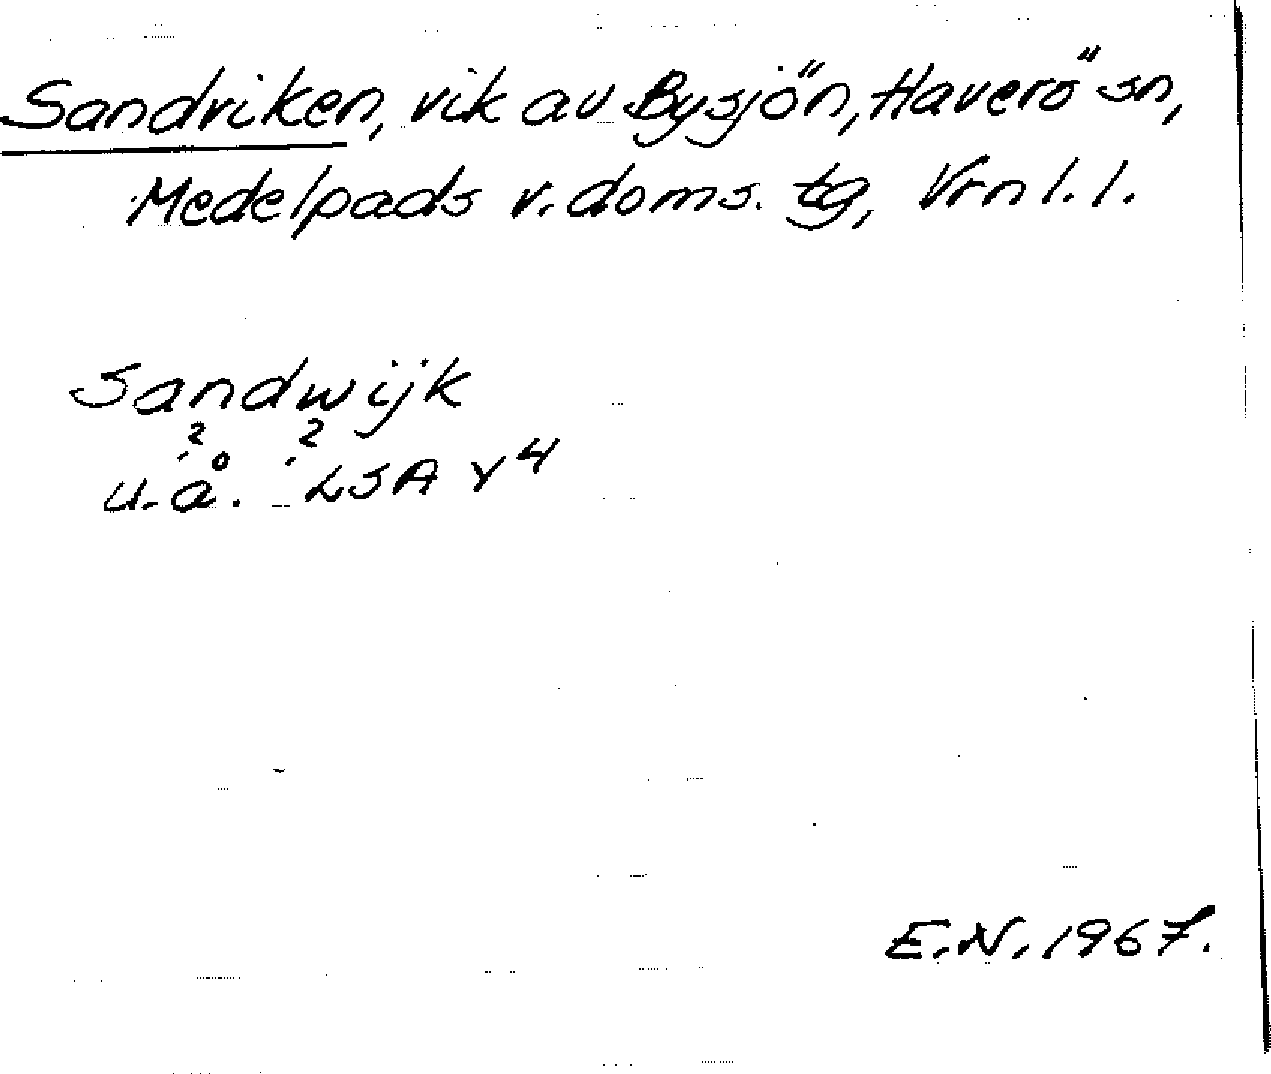 Sandviken, vik av Bysjön, Haverö sn,
Medelpads v. doms. tg, Vrnl. l.
Sandwijk
? ?
u. å. LSA Y 4
E. N. 1967.